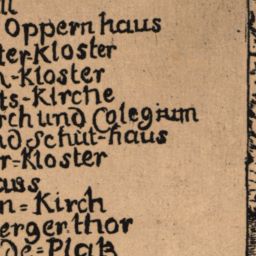 Oppern haus
ter-Kloster
-Kloster
ts-Kirche
rch und Colegium
nd Schüt-haus
r-Kloster
aus
n=Kirch
berger thor
de=Platz